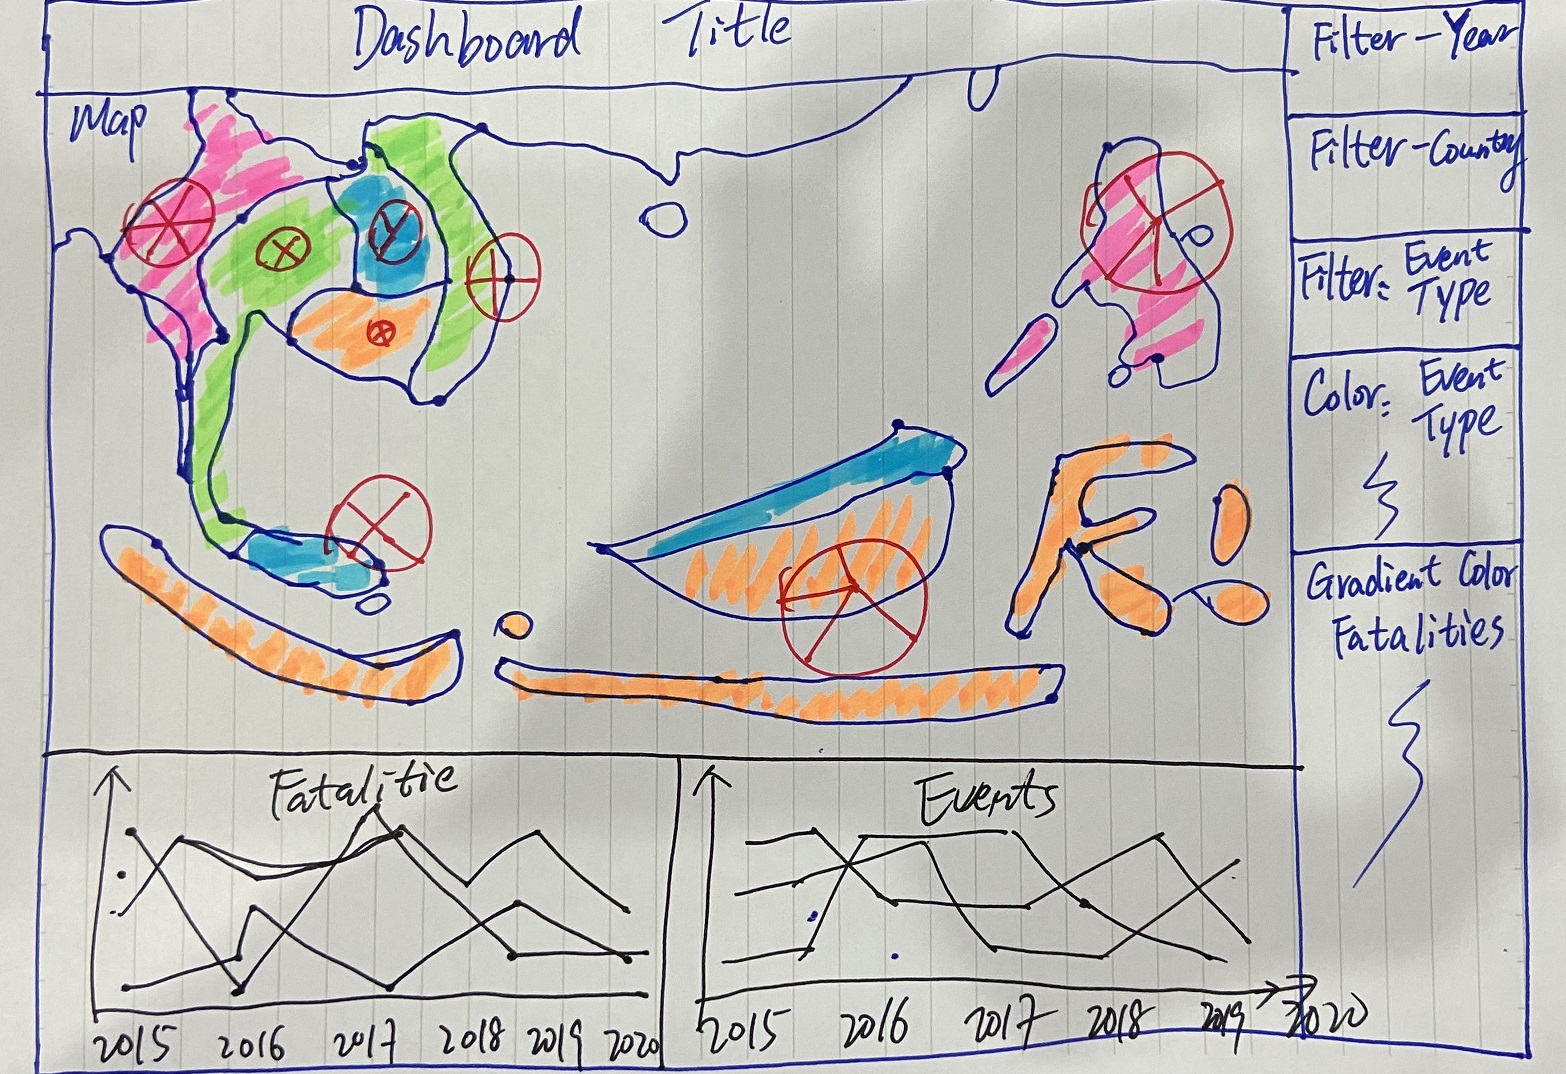 Dashboard Title
Filter - Year
Map
Filter - Country
Filter: Event
Type
Color: Event
Type
Gradient Color
Fatalities
Fatalitie
Events
2015 2016 2017 2018 2019 2020
2015 2016 2017 2018 2019 2020